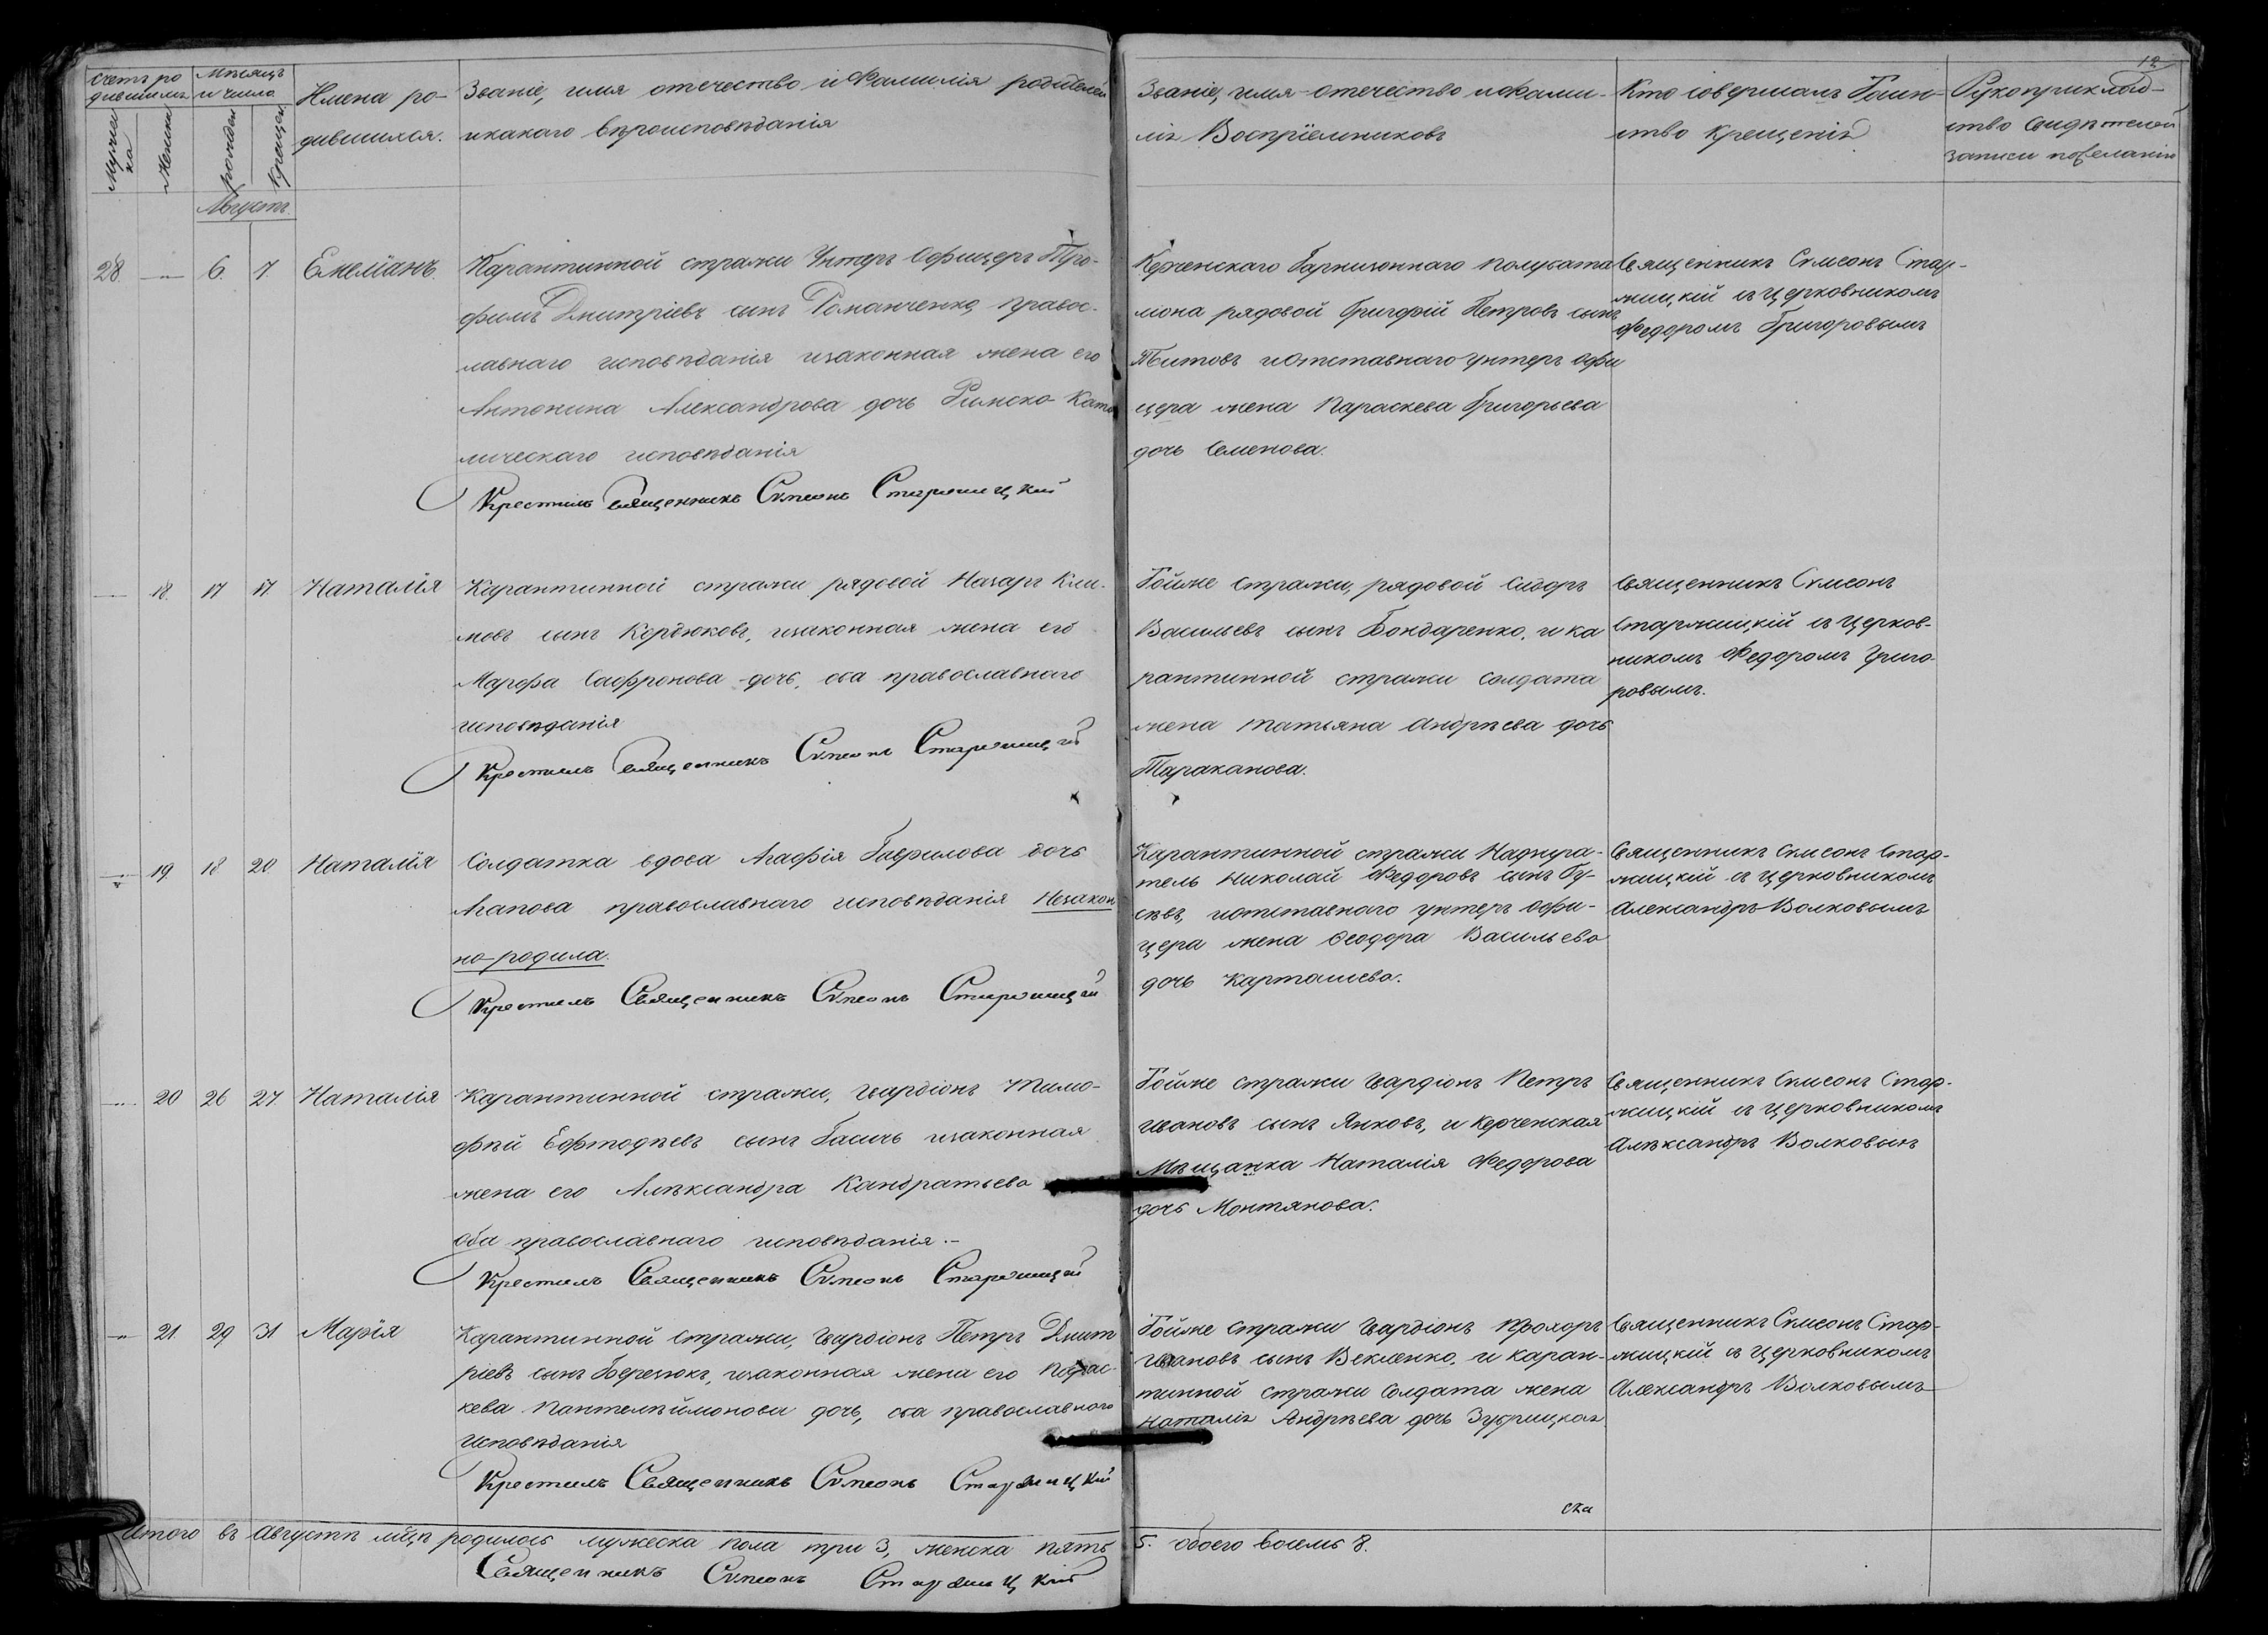 12
Счетъ ро
дившихъ
Мѣсяцъ
и число
Мужес
ка
Женска
рожден
Крещен
Имена ро-
дившихся.
Званіе, имя отечество и Фамилія родителей
и какаго вѣроисповѣданія
Званіе, имя отечество и фами-
лія Воспріемниковъ
Кто совершалъ Таин-
ство крещенія
Рукоприклад-
ство свидѣтелей
записи по желанію
Августъ
28 — 6. 7. Емеліанъ.
Карантинной стражи Унтеръ Офицеръ Тро-
фимъ Дмитріевъ сынъ Романченко правос-
лавнаго исповѣданія изаконная жена его
Антонина Александрова дочь Римско-Като
лическаго исповѣданія
Крестилъ Священникъ Сѵмеонъ Старжицкій
Керченскаго Гарнизоннаго полубата
лiона рядовой Григорій Петровъ сынъ
Титовъ и Отставнаго унтеръ офи
цера жена Параскева Григорьева
дочь Семенова.
Священникъ Сѵмеонъ Стар-
жицкій съ церковникомъ
Федоромъ Григоровымъ
— 18. 17 17. Наталія
Карантинной стражи рядовой Назаръ Кли-
мовъ сынъ Кордюковъ, изаконная жена его
Марфа Сафронова дочь, оба православнаго
исповѣданія
Крестилъ Священникъ Сѵмеонъ Старжицкій
Тойже стражи, рядовой Сидоръ
Васильевъ сынъ Бондаренко, и ка
рантинной стражи солдата
жена Татьяна Андрѣева дочь
Тараканова.
Священникъ Сѵмеонъ
Старжицкій съ Церков-
никомъ Федоромъ Григо
ровымъ.
— 19. 18 20 Наталія
Солдатка вдова Агафія Гаврилова дочь
Агапова православнаго исповѣданія Незакон
но-родила.
Крестилъ Священникъ Сѵмеонъ Старжицкій
Карантинной стражи Надзира-
тель Николай Федоровъ сынъ Гу-
севъ, иотставнаго унтеръ офи-
цера жена Ѳеодора Васильева
дочь Карташева.
Священникъ Сѵмеонъ Стар-
жицкій съ церковникомъ
Александръ Волковымъ
— 20 26 27. Наталія
Карантинной стражи, гвардіонъ Тимо-
фѣй сынъ изаконная
жена его Алѣксандра Кандратьева
оба православнаго исповѣданія.-
Крестилъ Священникъ Сѵмеонъ Старжицкій
Тойже стражи Гвардіонъ Петръ
Ивановъ сынъ Янковъ, и Керченская
Мѣщанка Наталія Федорова
дочь Монтянова.
Священникъ Сѵмеонъ Стар-
жицкій съ церковникомъ
Алѣксандръ Волковымъ
— 21. 29 31 Марія
Карантинной стражи, Гвардіонъ Петръ Дмит
ріевъ сынъ Березюкъ, изаконная жена его Парас-
кева Пантелѣймонова дочь, оба православнаго
исповѣданія
Крестилъ Священникъ Сѵмеонъ Старжицкій
Тойже стражи Гвардіонъ Прохоръ
Ивановъ сынъ Векленко, и каран-
тинной стражи Солдата жена
Наталія Андрѣева дочь Зубрицкая
Священникъ Сѵмеонъ Стар-
жицкій съ церковникомъ
Александръ Волковымъ
Итого въ Августѣ мцѣ родилось мужеска пола три 3, женска пять 5. обоего восемь 8.
Священникъ Сѵмеонъ Старжицкій